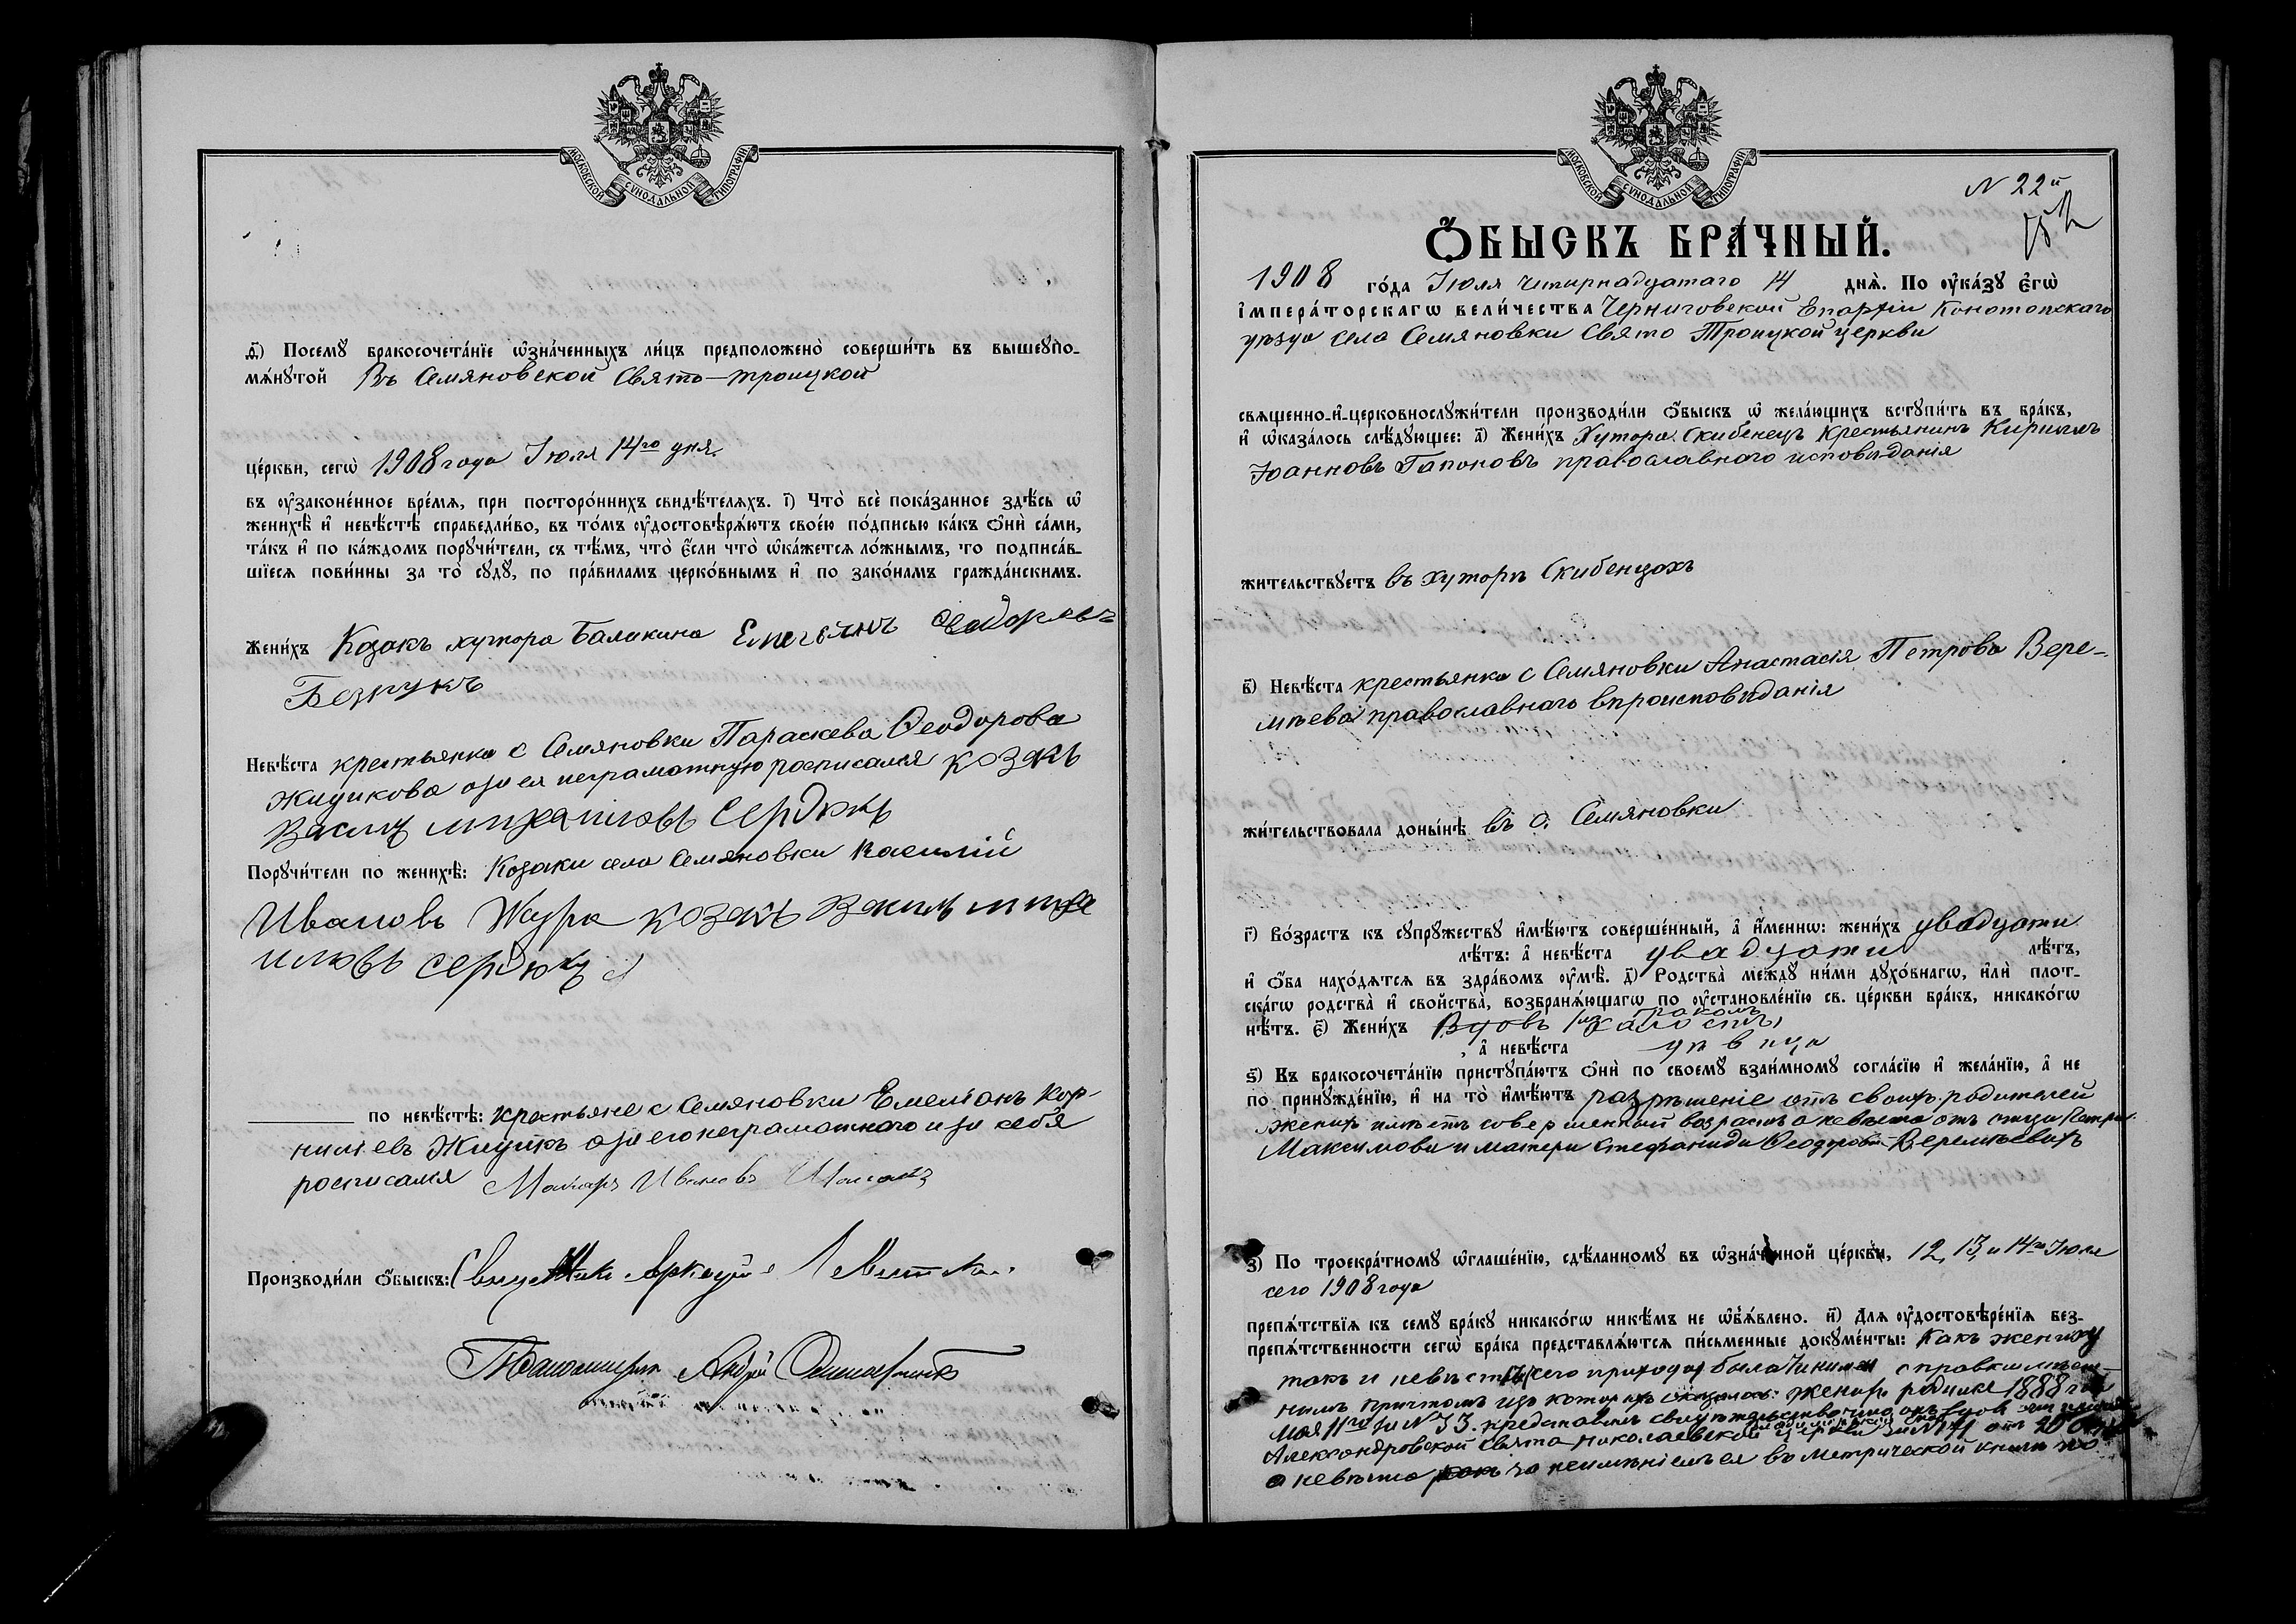 МОСКОВСКОЙ СѴНОДАЛЬНОЙ ТИПОГРАФІИ
ѳ҃) Посемꙋ̀ бракосочета́нїе ѡ҆зна́ченныхъ ли́цъ предположено̀ соверши́ть въ вышеꙋпо-
мѧ́нꙋтой Въ Семяновской Свято-Троицкой
це́ркви, сегѡ̀ 1908 года Іюля 14го дня.
въ ᲂу҆законе́нное вре́мѧ, при посторо́ннихъ свидѣ́телѧхъ. і҃) Что̀ всѐ пока́занное здѣ́сь ѡ҆
женихѣ̀ и҆ невѣ́стѣ справедли́во, въ то́мъ ᲂу҆достовѣрѧ́ютъ свое́ю по́дписью ка́къ ѻ҆нѝ са́ми,
та́къ и҆ по ка́ждомъ порꙋчи́тели, съ тѣ́мъ, что̀ є҆́сли что̀ ѡ҆ка́жетсѧ ло́жнымъ, то подписа́в-
шїесѧ пови́нны за то̀ сꙋдꙋ̀, по пра́виламъ церко́внымъ и҆ по зако́намъ гражда́нскимъ.
Жени́хъ Козакъ хутора Балакина Емельянъ
Безрукъ
Невѣ́ста крестьянка с Семяновки Параскева Ѳеодорова
Жидикова а за ея неграмотную росписался козакъ
Сердюкъ
Порꙋчи́тели по женихѣ̀: Козаки села Семяновки Василій
Ивановъ Жура козакъ
иловъ Сердюкъ
по невѣ́стѣ: крестьяне с Семяновки Емеліанъ Кор-
ниліевъ Жидикъ а за его неграмотного и за себя
росписался Макаръ Ивановъ
Производи́ли ѻ҆́быскъ: Священникъ Аркадій
Псаломщикъ Андрей
МОСКОВСКОЙ СѴНОДАЛЬНОЙ ТИПОГРАФІИ
N 22й
Ѻ҆́БЫСКЪ БРА́ЧНЫЙ.
1908 го́да Іюля четырнадцатаго 14 днѧ̀. По ᲂу҆ка́зꙋ є҆гѡ̀
і҆мпера́торскагѡ вели́чества Черниговской Епархіи Конотопскаго
уѣзда села Семяновки Свято Троицкой церкви
свѧще́нно-и҆-церковнослꙋжи́тели производи́ли ѻ҆́быскъ ѡ҆ жела́ющихъ встꙋпи́ть въ бра́къ,
и҆ ѡ҆каза́лось слѣ́дꙋющее: а҃) Жени́хъ Хутора Скибенецъ Крестьянинъ Кириллъ
Іоанновъ Гапоновъ православнаго исповѣданія
жи́тельствꙋетъ въ хуторѣ Скибенцахъ
в҃) Невѣ́ста крестьянка с Семяновки Анастасія Петрова Вере-
мѣева православнаго вѣроисповѣданія
жи́тельствовала доны́нѣ въ с. Семяновки
г҃) Во́зрастъ къ сꙋпрꙋ́жествꙋ и҆мѣ́ютъ соверше́нный, а҆ и҆́меннѡ: жени́хъ двадцати
лѣ́тъ: а҆ невѣ́ста двадцати лѣ́тъ,
и҆ ѻ҆́ба нахо́дѧтсѧ въ здра́вомъ ᲂу҆мѣ̀. д҃) Родства̀ междꙋ̀ ни́ми дꙋхо́внагѡ, и҆лѝ плот-
ска́гѡ родства̀ и҆ сво́йства, возбранѧ́ющагѡ по ᲂу҆становле́нїю св. це́ркви бра́къ, никако́гѡ
нѣ́тъ. є҃) Жени́хъ Вдовъ
, а҆ невѣ́ста дѣвица
ѕ҃) Къ бракосочета́нїю пристꙋпа́ютъ ѻ҆нѝ по своемꙋ̀ взаи́мномꙋ согла́сїю и҆ жела́нїю, а҆ не
по принꙋжде́нїю, и҆ на то̀ и҆мѣ́ютъ разрѣшеніе отъ своихъ родителей
женихъ имѣетъ совершенный возрастъ а невѣста отъ отца Петра
Максимова и матери Стефаниды Ѳеодоровой Веремѣевыхъ
з҃) По троекра́тномꙋ ѡ҆глаше́нїю, сдѣ́ланномꙋ въ ѡ҆зна́ченной це́ркви, 12, 13 и 14го Іюля
сего 1908 года
препѧ́тствїѧ къ семꙋ̀ бра́кꙋ никако́гѡ никѣ́мъ не ѡ҆б̾ѧ́влено. и҃) Длѧ ᲂу҆достовѣре́нїѧ без-
препѧ́тственности сегѡ̀ бра́ка представлѧ́ютсѧ пи́сьменные докꙋме́нты: Какъ жениху
такъ и невѣстѣ сего прихода была чинима справка мѣст-
нымъ причтомъ изъ которыхъ оказалось: женихъ родился 1888 года
мая 11го за N 33. представилъ свидѣтельство что онъ вдовъ
Александровской Свято-Николаевской церкви за N
а невѣста за неимѣніемъ ея въ метрической книги